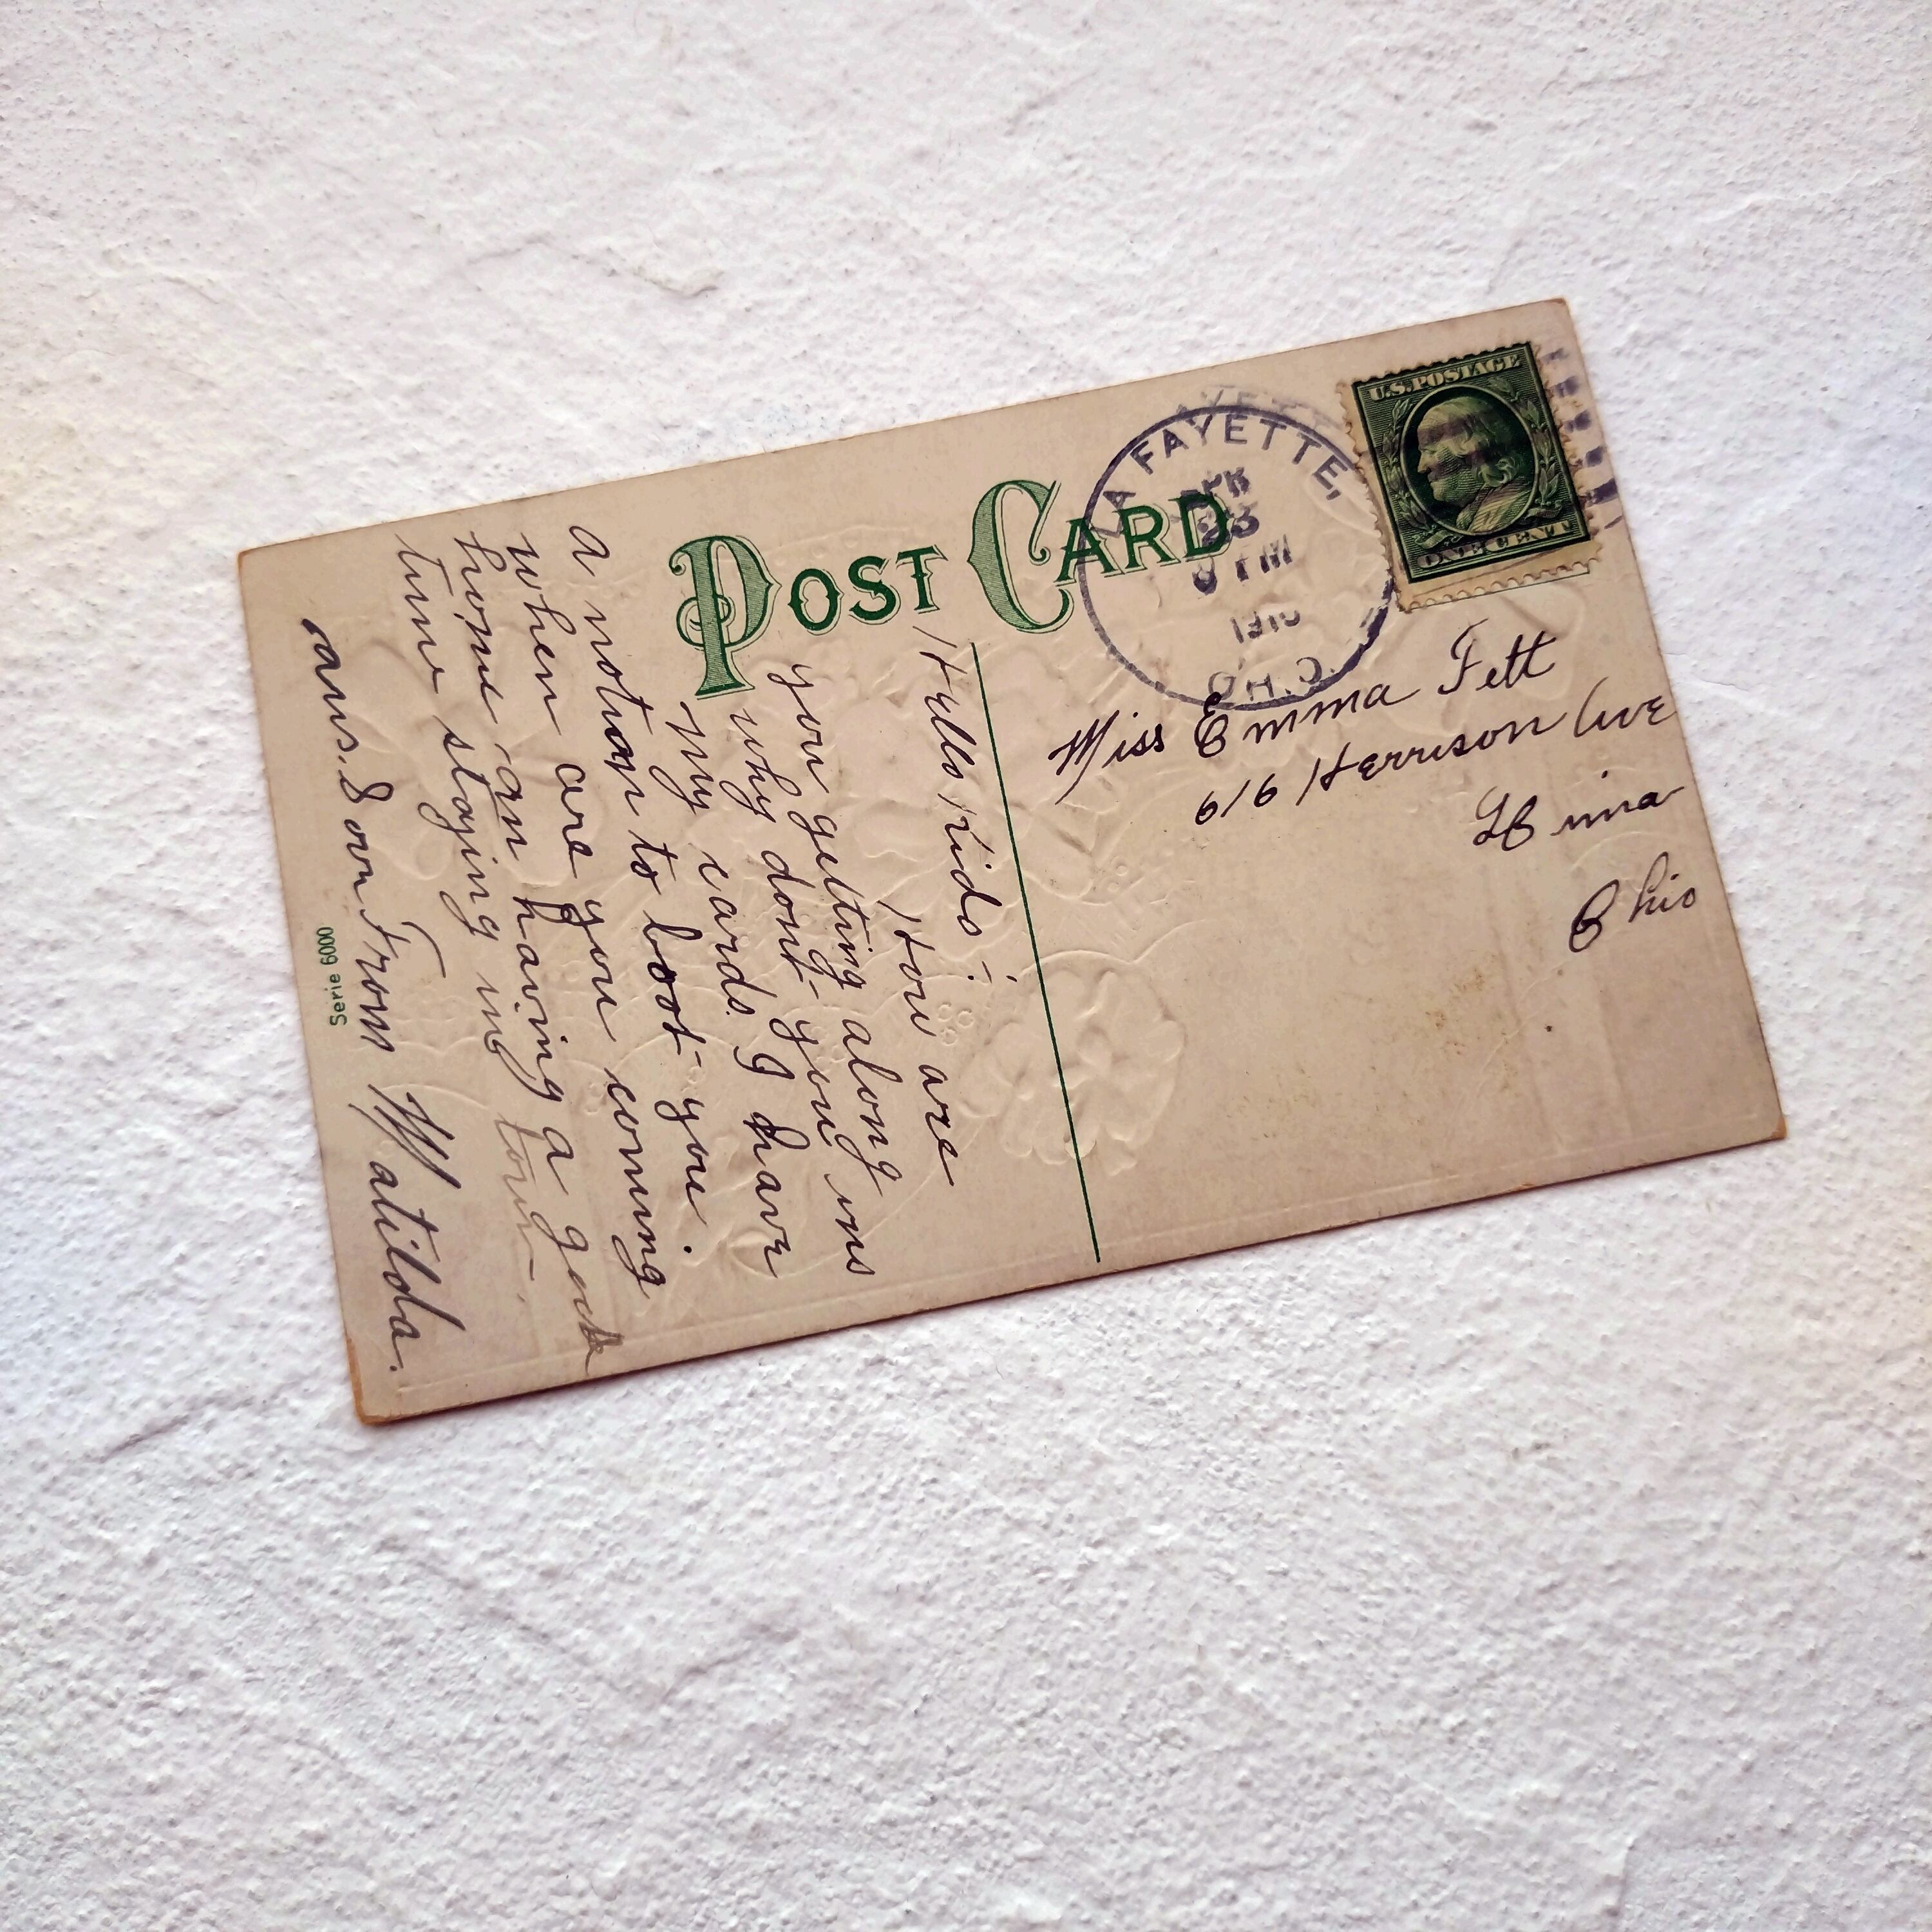 POST CARD
LA FAYETTE,
APR
23
1910
OHIO
U.S. POSTAGE
ONE CENT
Miss Emma Fett
616 Herrison Ave
Lima
Ohio
Hello Kido:-
How are
you getting along
why dont you ans
my cards. I have
a notion to boot you.
when are you coming
home - am having a good
time staying in town.
ans. Soon From Matilda.
Serie 6000